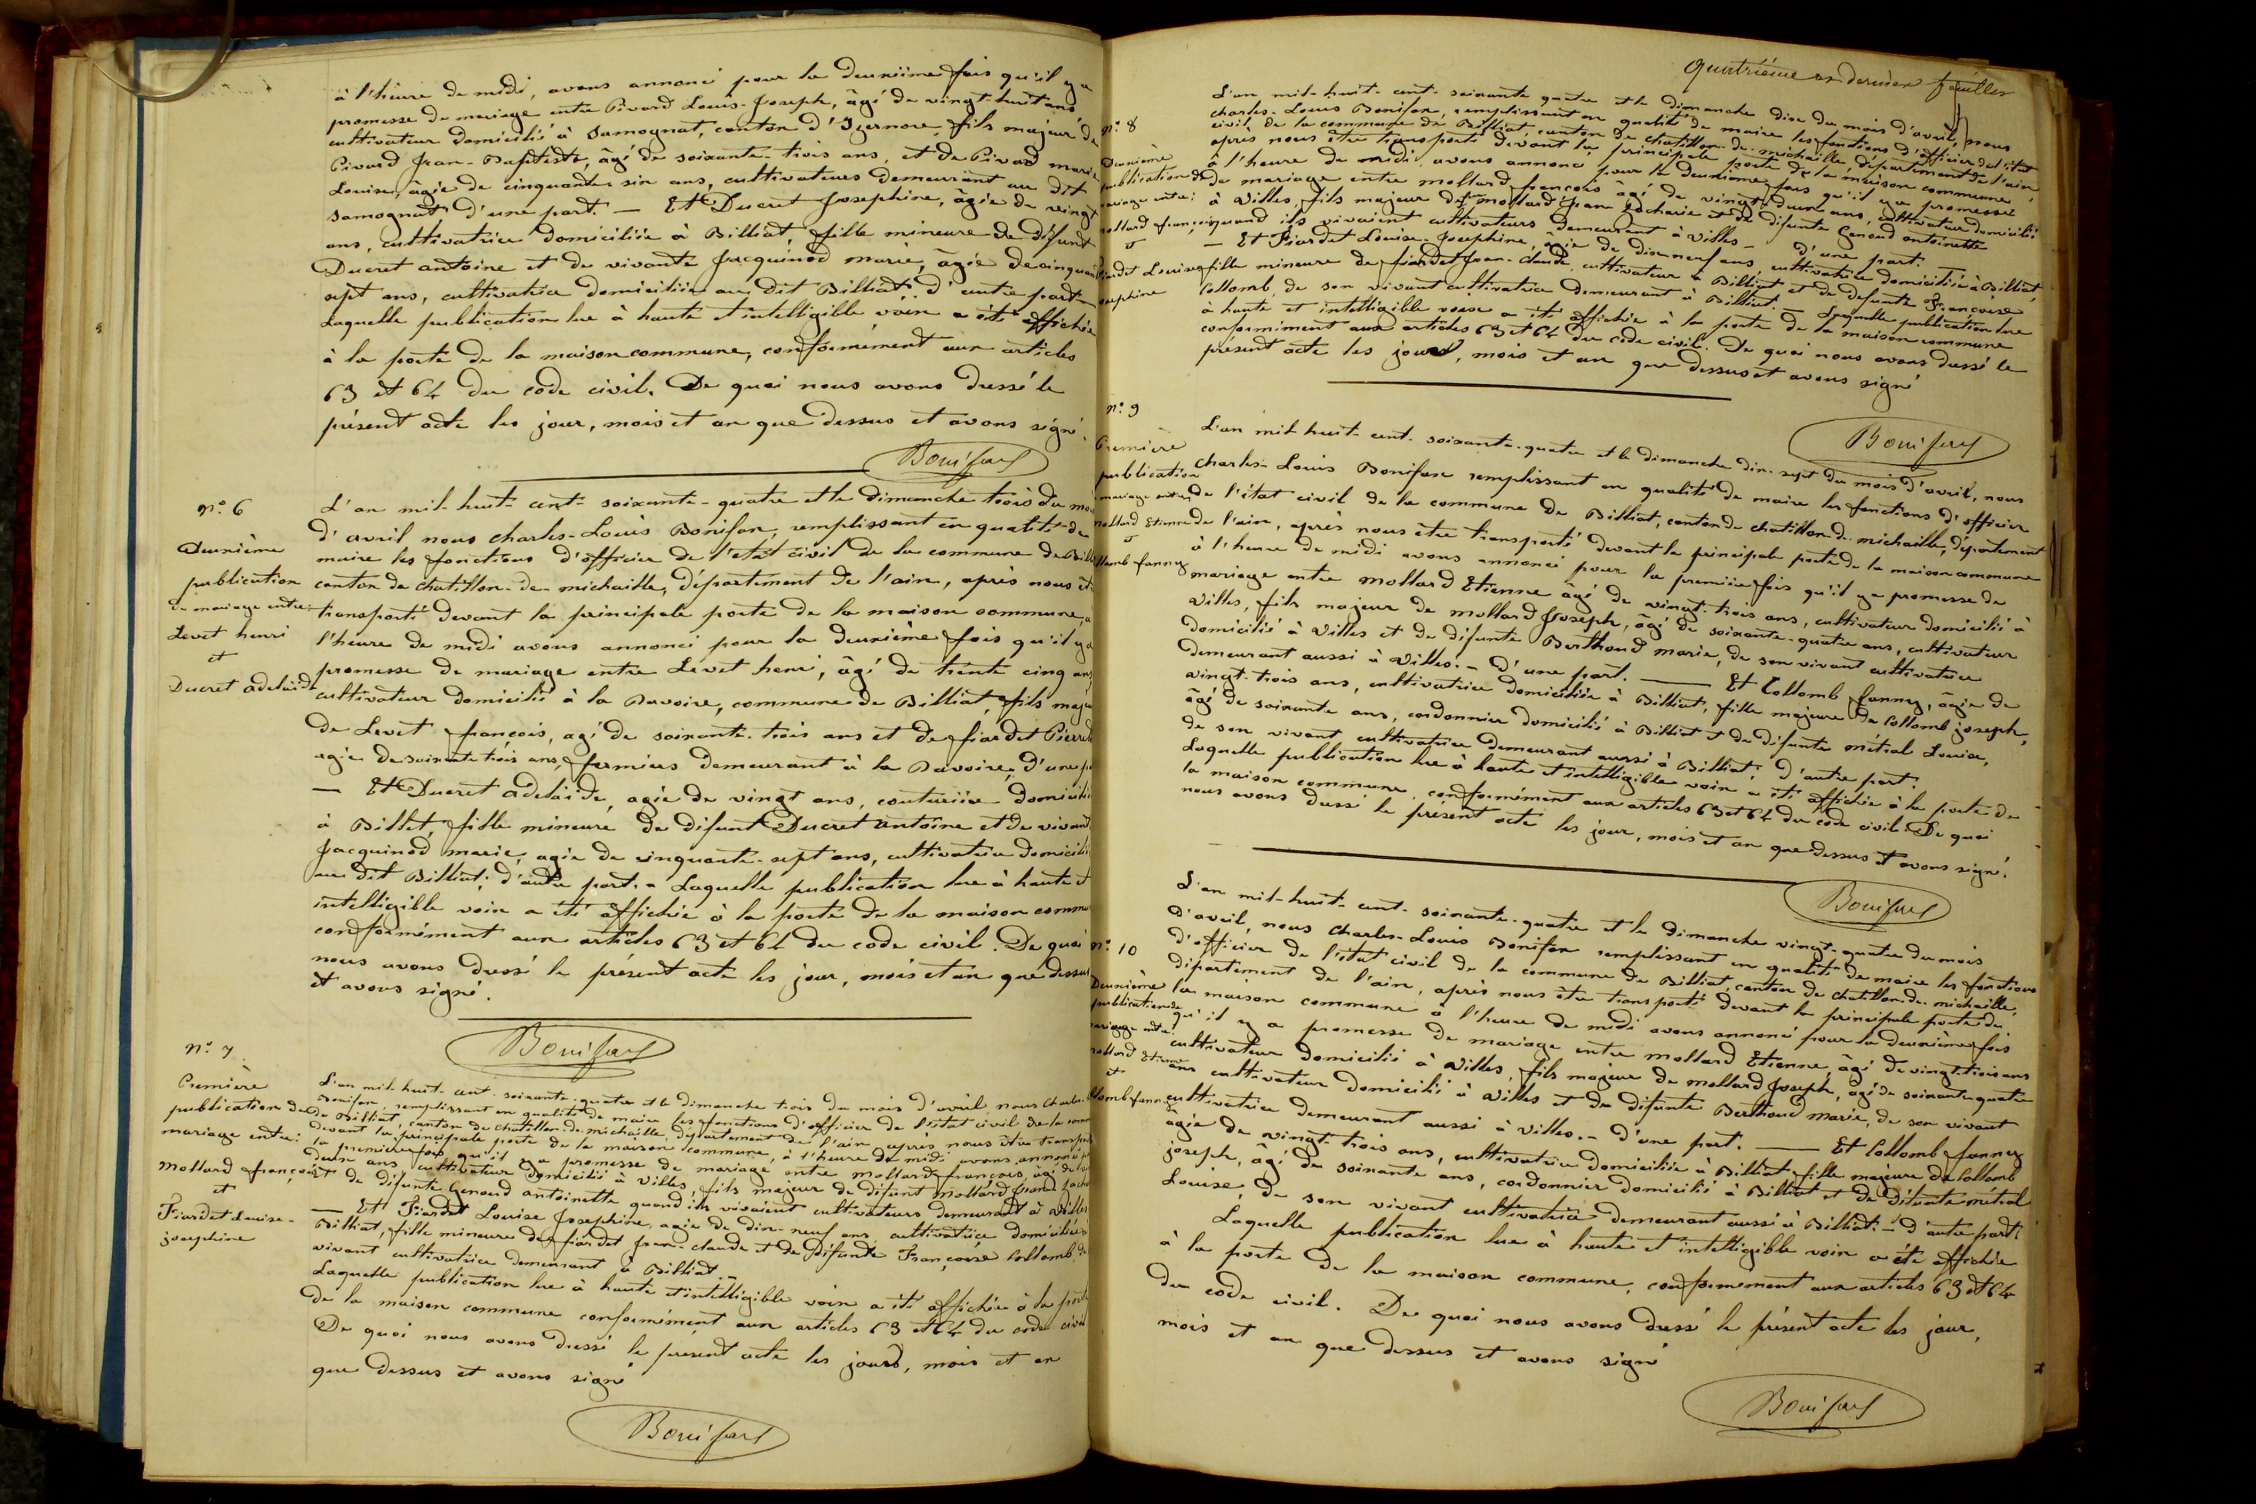 à l'heure de midi, avons annoncé pour la deuxième fois qu'il y a
promesse de mariage entre Pivard Louis-Joseph, âgé de vingt-huit ans
cultivateur domicilié à Samognat, canton d'Izernore, fils majeur de
Pivard Jean-Baptiste, âgé de soixante-trois ans, et de Pivard marie
Louise, âgée de cinquante six ans, cultivateurs demeurant au dit
Samognat d'une part. — Et Ducret Josephine, âgée de vingt
ans, cultivatrice domiciliée à Billiat fille mineure de défunt
Ducret antoine et de vivante Jacquinod marie, âgée de cinquante
sept ans, cultivatrice domiciliée au dit Billiat, d'autre part —
Laquelle publication lue à haute et intelligible voix a été affichée
à la porte de la maison commune, conformément aux articles
63 et 64 du code civil. De quoi nous avons dressé le
présent acte les jour, mois et an que dessus et avons signé.
Bonifax
n° 6
Deuxième
publication
de mariage entre:
Levet henri
et
Ducret adelaïde
L'an mil-huit-cent-soixante-quatre et le dimanche trois du mois
d'avril nous charles-Louis Bonifax, remplissant en qualité de
maire les fonctions d'officier de l'état civil de la commune de Billiat
canton de chatillon-de-michaille, département de l'ain, après nous être
transporté devant la principale porte de la maison commune, à
l'heure de midi avons annoncé pour la deuxième fois qu'il y a
promesse de mariage entre Levet henri, âgé de trente cinq ans
cultivateur domicilié à la Davoire, commune de Billiat, fils majeur
de Levet françois, agé de soixante-trois ans et de fiardet Pierrette
agée de soixante trois ans, fermiers demeurant à la Davoire, d'une part
— Et Ducret adelaïde, agée de vingt ans, couturière domiciliée
à Billet, fille mineure de défunt Ducret antoine et de vivante
Jacquinod marie, agée de cinquante-sept ans, cultivatrice domiciliée
au dit Billiat, d'autre part. — Laquelle publication lue à haute et
intelligible voix a été affichée à la porte de la maison commune
conformément aux articles 63 et 64 du code civil. De quoi
nous avons dressé le présent acte les jour, mois et an que dessus
et avons signé.
Bonifax
n° 7
Première
publication de
mariage entre:
Mollard françois
et
Fiardet Louise-
josephine
L'an mil-huit-cent-soixante-quatre et le dimanche trois du mois d'avril nous charles-Louis
Bonifax, remplissant en qualité de maire les fonctions d'officier de l'état civil de la commune
de Billiat, canton de chatillon-de-michaille, département de l'ain, après nous être transporté
devant la principale porte de la maison commune, à l'heure de midi avons annoncé pour
la première fois qu'il y a promesse de mariage entre mollard françois, âgé de vingt
deux ans cultivateur domicilié à Villes, fils majeur de défunt mollard Jean Zacharie
et de défunte Genoud antoinette quand ils vivaient cultivateurs demeurant à Villes
— Et Fiardet Louise Josephine, agée de dix-neuf ans cultivatrice domiciliée à
Billiat, fille mineure de fiardet jean-claude et de défunte Françoise Collomb, de son
vivant cultivatrice demeurant à Billiat —
Laquelle publication lue à haute et intelligible voix a été affichée à la porte
de la maison commune conformément aux articles 63 et 64 du code civil
De quoi nous avons dressé le présent acte les jours, mois et an
que dessus et avons signé
Bonifax
Quatrième et dernier feuillet
n° 8
Deuxième
publication de
mariage entre:
mollard françois
et
Fiardet Louise
josephine
L'an mil-huit-cent-soixante quatre et le dimanche dix du mois d'avril, nous
charles-Louis Bonifax, remplissant en qualité de maire les fonctions d'officier de l'état
civil de la commune de Billiat, canton de chatillon-de-michaille, département de l'ain
après nous être transporté devant la principale porte de la maison commune,
à l'heure de midi, avons annoncé pour la deuxième fois qu'il y a promesse
de mariage entre mollard françois âgé de vingt-deux ans, cultivateur domicilié
à Villes, fils majeur de feu mollard Jean Zacharie et de défunte Genoud antoinette
quand ils vivaient cultivateurs demeurant à Villes — d'une part.
— Et Fiardet Louise-Josephine, âgée de dix-neuf ans, cultivatrice domiciliée à Billiat,
fille mineure de fiardet Jean-Claude, cultivateur à Billiat et de défunte Françoise
Collomb, de son vivant cultivatrice demeurant à Billiat. — Laquelle publication lue
à haute et intelligible voix a été affichée à la porte de la maison commune
conformément aux articles 63 et 64 du code civil. De quoi nous avons dressé le
présent acte les jours, mois et an que dessus et avons signé
Bonifax
n° 9
Première
publication
de mariage entre
Mollard Etienne
et
Collomb fanny
L'an mil-huit-cent-soixante-quatre et le dimanche dix-sept du mois d'avril, nous
charles-Louis Bonifax remplissant en qualité de maire les fonctions d'officier
de l'état civil de la commune de Billiat, canton de chatillon-de-michaille, département
de l'ain, après nous être transporté devant la principale porte de la maison commune
à l'heure de midi avons annoncé pour la première fois qu'il y a promesse de
mariage entre mollard Etienne âgé de vingt-trois ans, cultivateur domicilié à
Villes, fils majeur de mollard Joseph, âgé de soixante-quatre ans, cultivateur
domicilié à Villes et de défunte Berthoud marie, de son vivant cultivatrice
demeurant aussi à Villes. — d'une part. — Et Collomb fanny, âgée de
vingt-trois ans, cultivatrice domiciliée à Billiat, fille majeure de Collomb joseph,
âgé de soixante ans, cordonnier domicilié à Billiat et de défunte métral Louise,
de son vivant cultivatrice demeurant aussi à Billiat; d'autre part.
Laquelle publication lue à haute et intelligible voix a été affichée à la porte de
la maison commune, conformément aux articles 63 et 64 du code civil. De quoi
nous avons dressé le présent acte les jour, mois et an que dessus et avons signé.
Bonifax
n° 10
Deuxième
publication de
mariage entre:
mollard Etienne
et
Collomb fanny
L'an mil-huit-cent-soixante-quatre et le dimanche vingt-quatre du mois
d'avril, nous Charles-Louis Bonifax remplissant en qualité de maire les fonctions
d'officier de l'état civil de la commune de Billiat, canton de Chatillon-de-michaille,
département de l'ain, après nous être transporté devant la principale porte de
la maison commune à l'heure de midi avons annoncé pour la deuxième fois
qu'il y a promesse de mariage entre mollard Etienne, âgé de vingt-trois ans
cultivateur domicilié à Villes, fils majeur de mollard Joseph, âgé de soixante-quatre
ans cultivateur domicilié à Villes et de défunte Berthoud marie, de son vivant
cultivatrice demeurant aussi à Villes. — d'une part. — Et Collomb fanny
âgée de vingt-trois ans, cultivatrice domiciliée à Billiat, fille majeure de Collomb
joseph, âgé de soixante ans, cordonnier domicilié à Billiat et de défunte métral
Louise, de son vivant cultivatrice demeurant aussi à Billiat; — d'autre part.
Laquelle publication lue à haute et intelligible voix a été affichée
à la porte de la maison commune, conformément aux articles 63 et 64
du code civil. De quoi nous avons dressé le présent acte les jour,
mois et an que dessus et avons signé
Bonifax